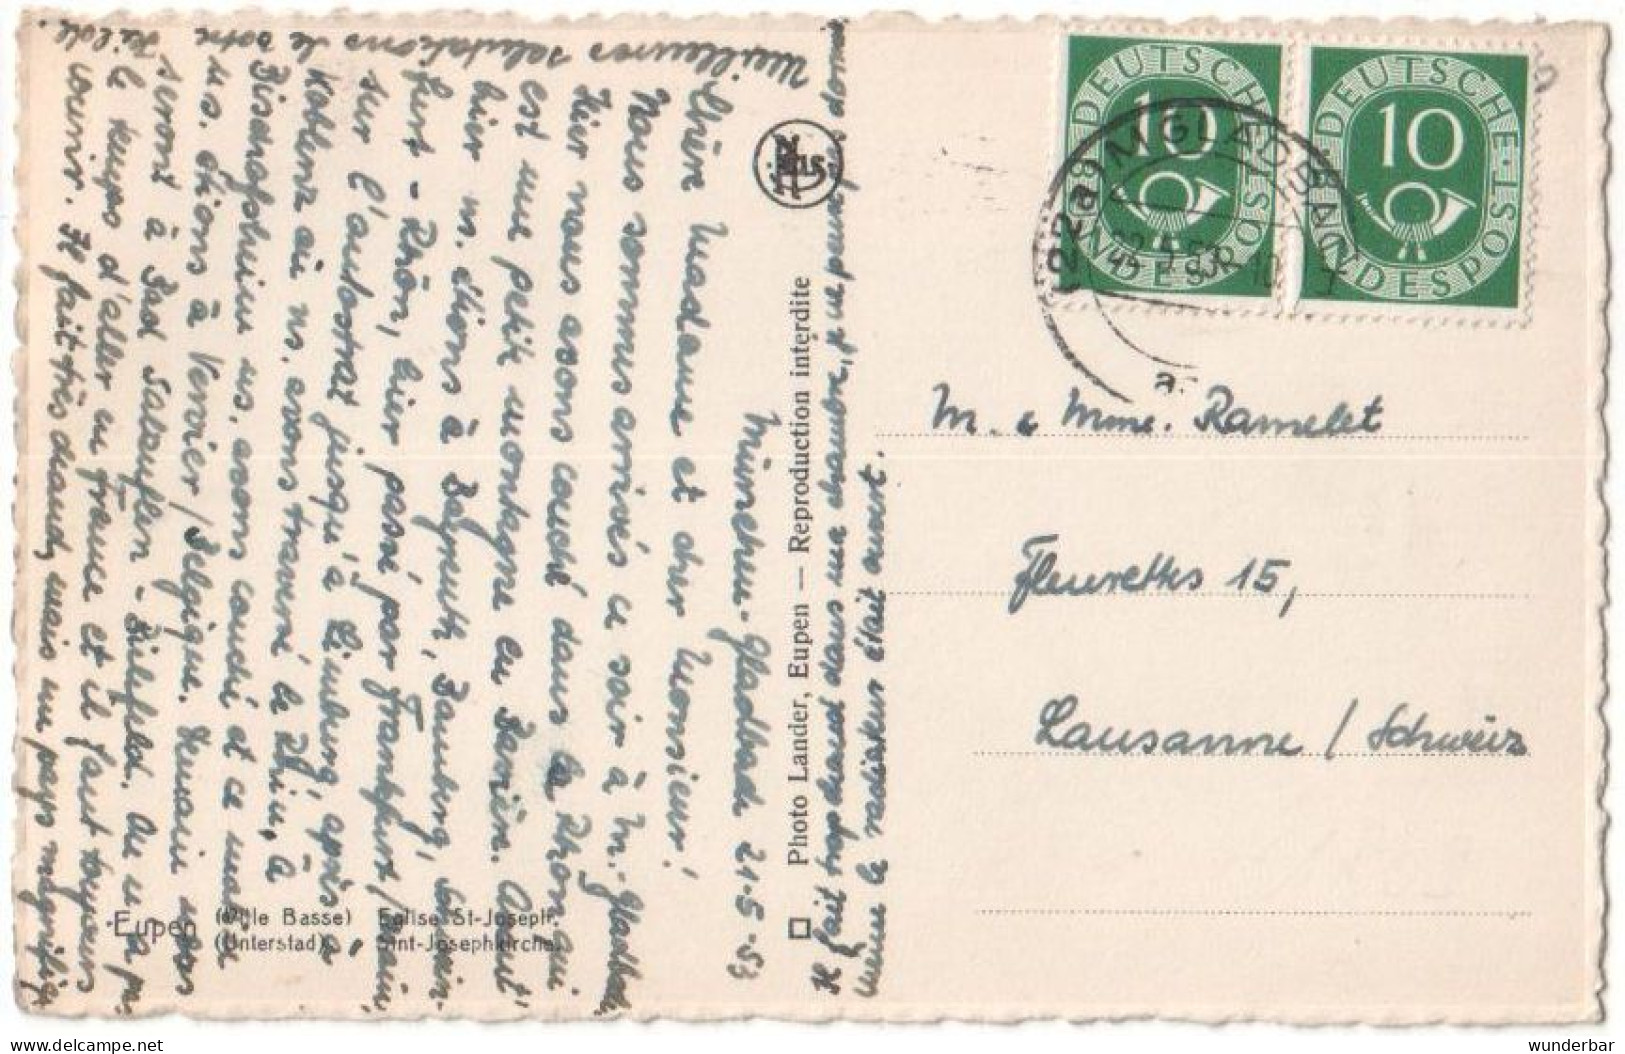 München-Gladbach 21-5-53
Chère Madame et cher Monsieur!
Nous sommes arrivés ce soir à M.-Gladbach
Hier nous avons couché dans la Rhön qui
est une petite montagne en Bavière. Avant
hier n. étions à Bayreuth, Bamberg,
furt - Rhön, hier passé par Frankfurt/Main,
sur l'autostrat jusqu'à Limburg, après à
Koblenz où ns. avons traversé le Rhin, à
ns. avons couché et ce matin
ns. étions à Vervier/Belgique. Demain nous
serons à Bad Salzuflen - Bielefeld. On n'a pas
le temps d'aller en France et il faut toujours
courir. Il fait très chaud, mais un pays magnifique
Meilleures salutations de votre
Il fait trop chaud dans ma chambre,
même le radiateur était ouvert.
Eupen (Ville Basse) Eglise St-Joseph.
(Unterstadt) Sint-Josephkirche.
Photo Lander, Eupen — Reproduction interdite
Nels
DEUTSCHE BUNDESPOST
10
DEUTSCHE BUNDESPOST
10
(22a) M GLADBACH
M. e Mme. Ramelet
Fleurettes 15,
Lausanne / Schweiz
wunderbar
delcampe.net